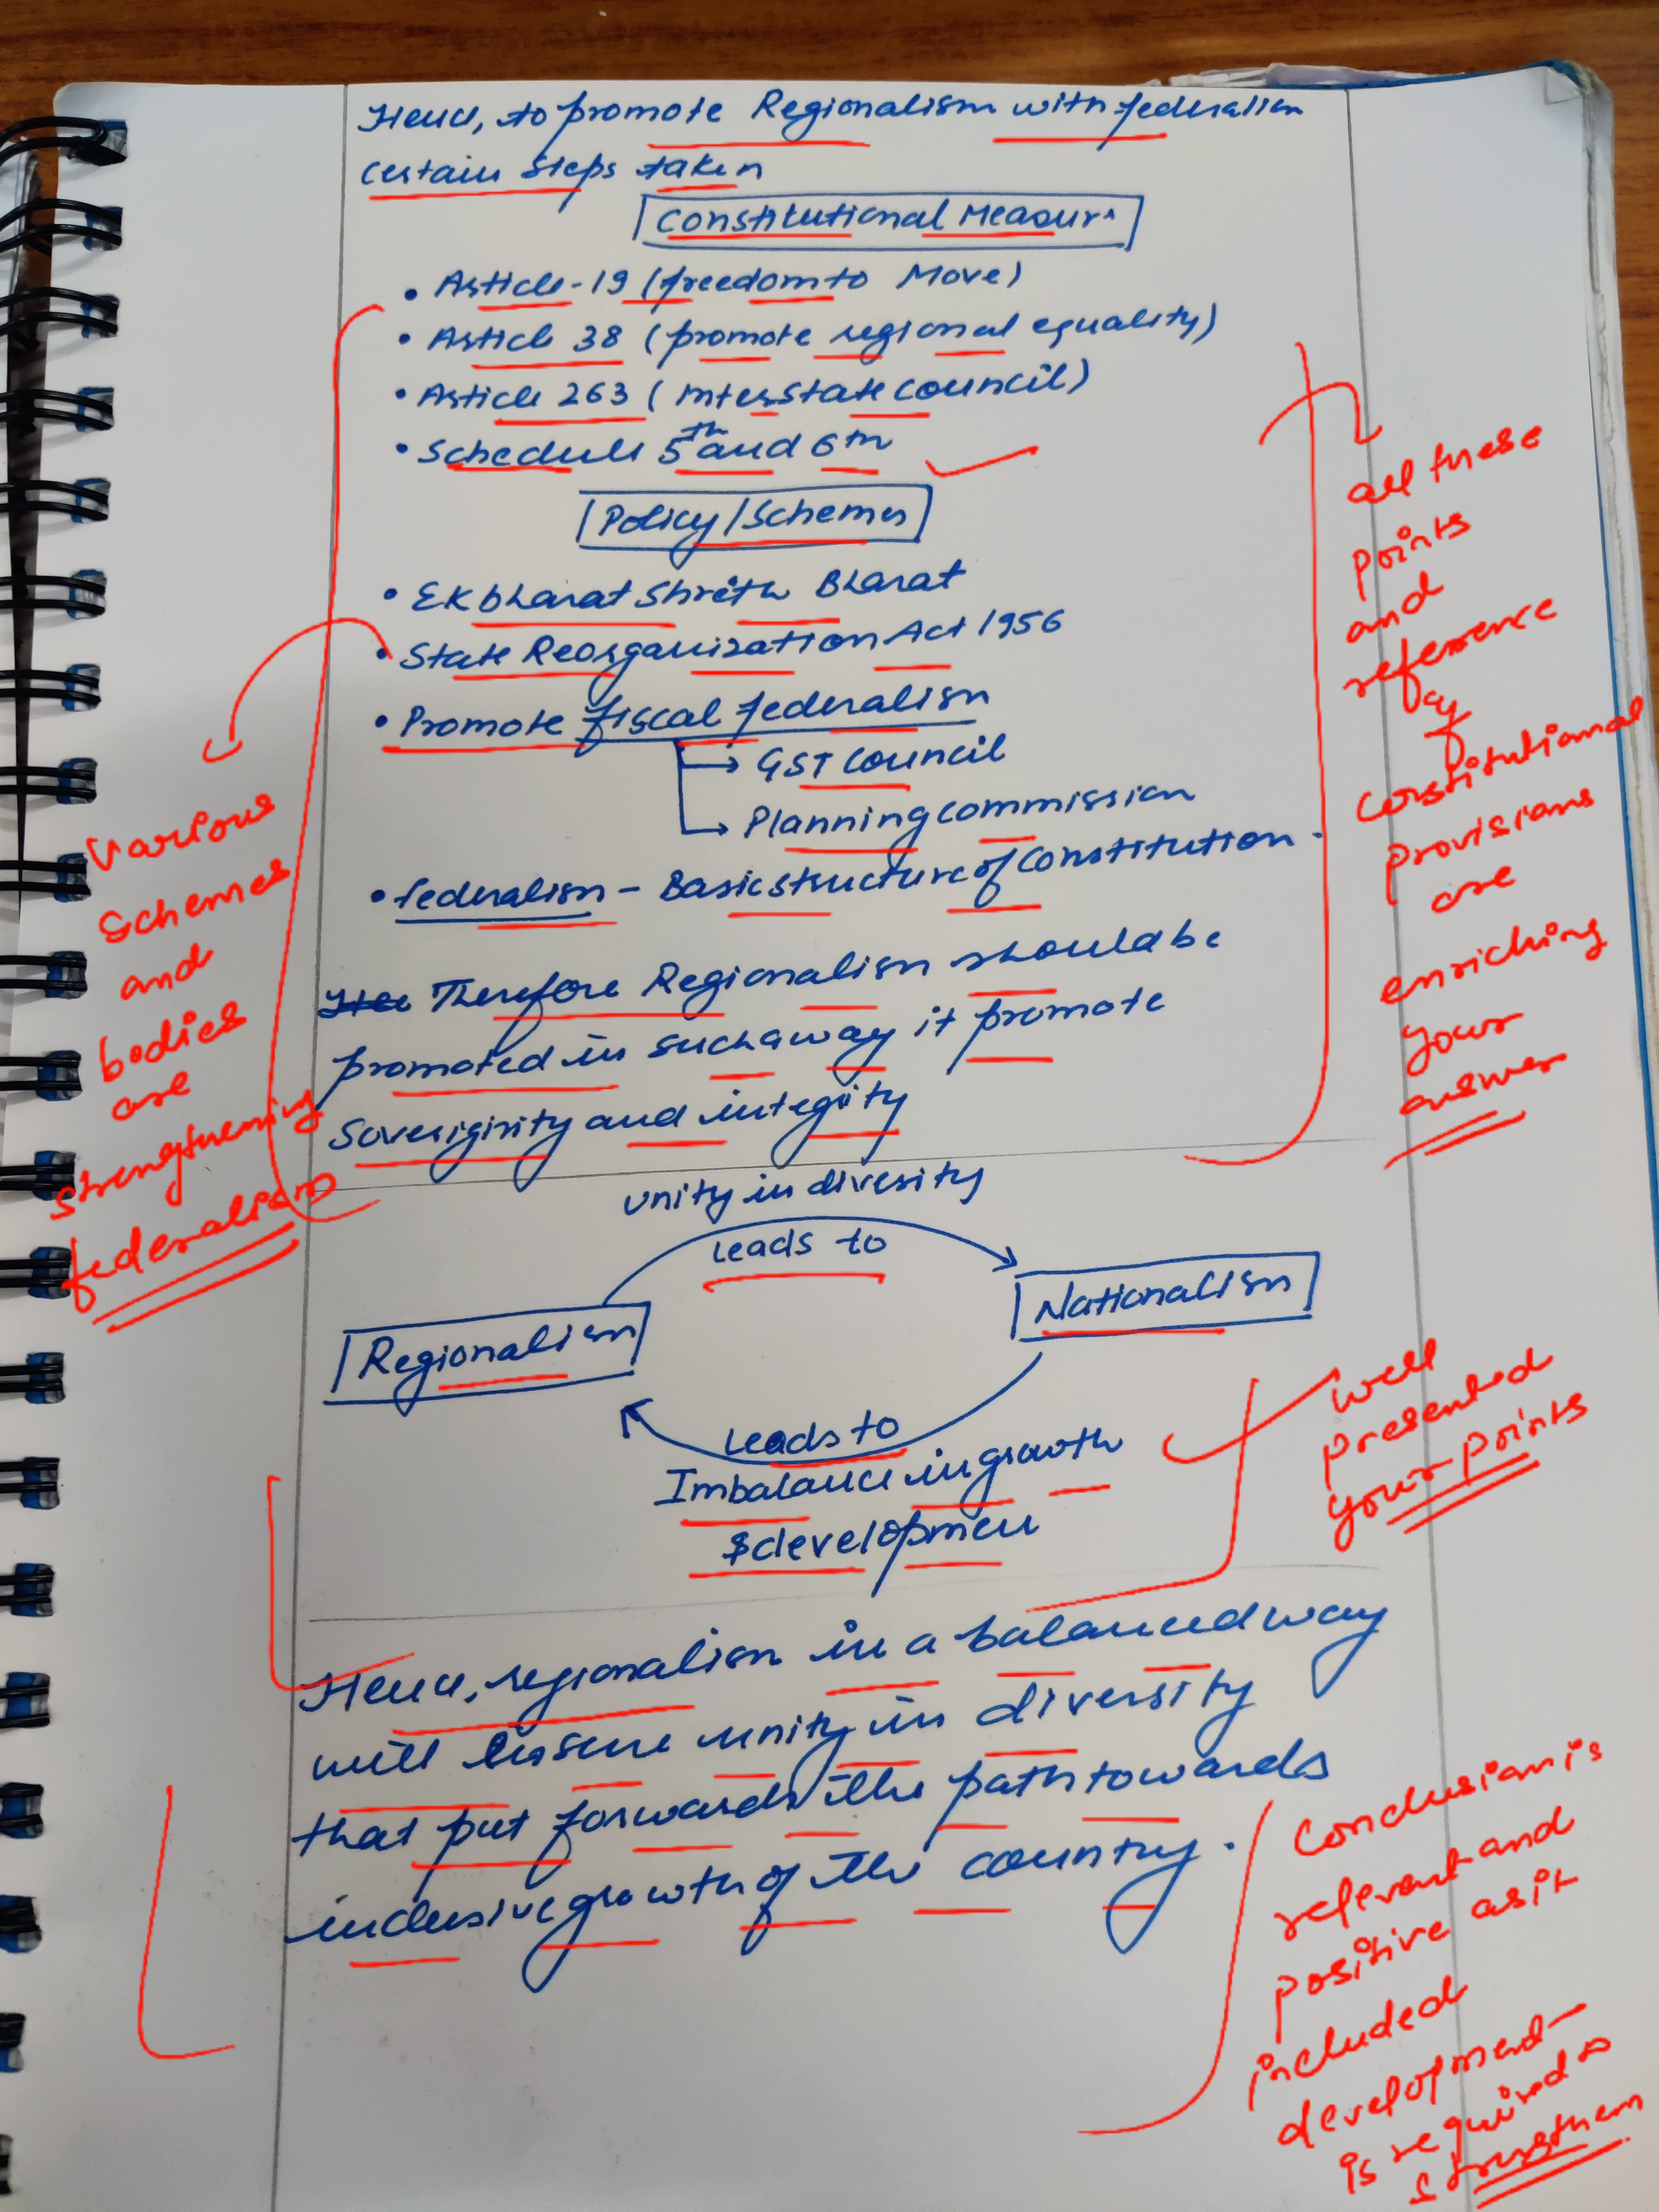 Hence, to promote Regionalism with federalism
certain steps taken
Constitutional Measure
• Article-19 (freedom to Move)
• Article 38 (promote regional equality)
• Article 263 (Inter State Council)
• Schedule 5th and 6th
Policy/Schemes
• Ek bharat Shreth Bharat
• State Reorganization Act 1956
• Promote fiscal federalism
→ GST Council
→ Planning commission
• federalism - Basic structure of Constitution.
Therefore Regionalism should be
promoted in such a way it promote
and integrity
unity in diversity
Leads to
Regionalism
Nationalism
Leads to
Imbalance in growth
& developmen
Hence, regionalism in a balanced way
will ensure unity in diversity
that put forwards the path towards
inclusive growth of the country.
Various
schemes
and
bodies
are
strengthening
federalism
all these
points
and
reference
of
constitutional
provisions
are
enriching
your
answer
well
presented
your points
Conclusion is
relevant and
positive as it
included
development
is required to
strengthen